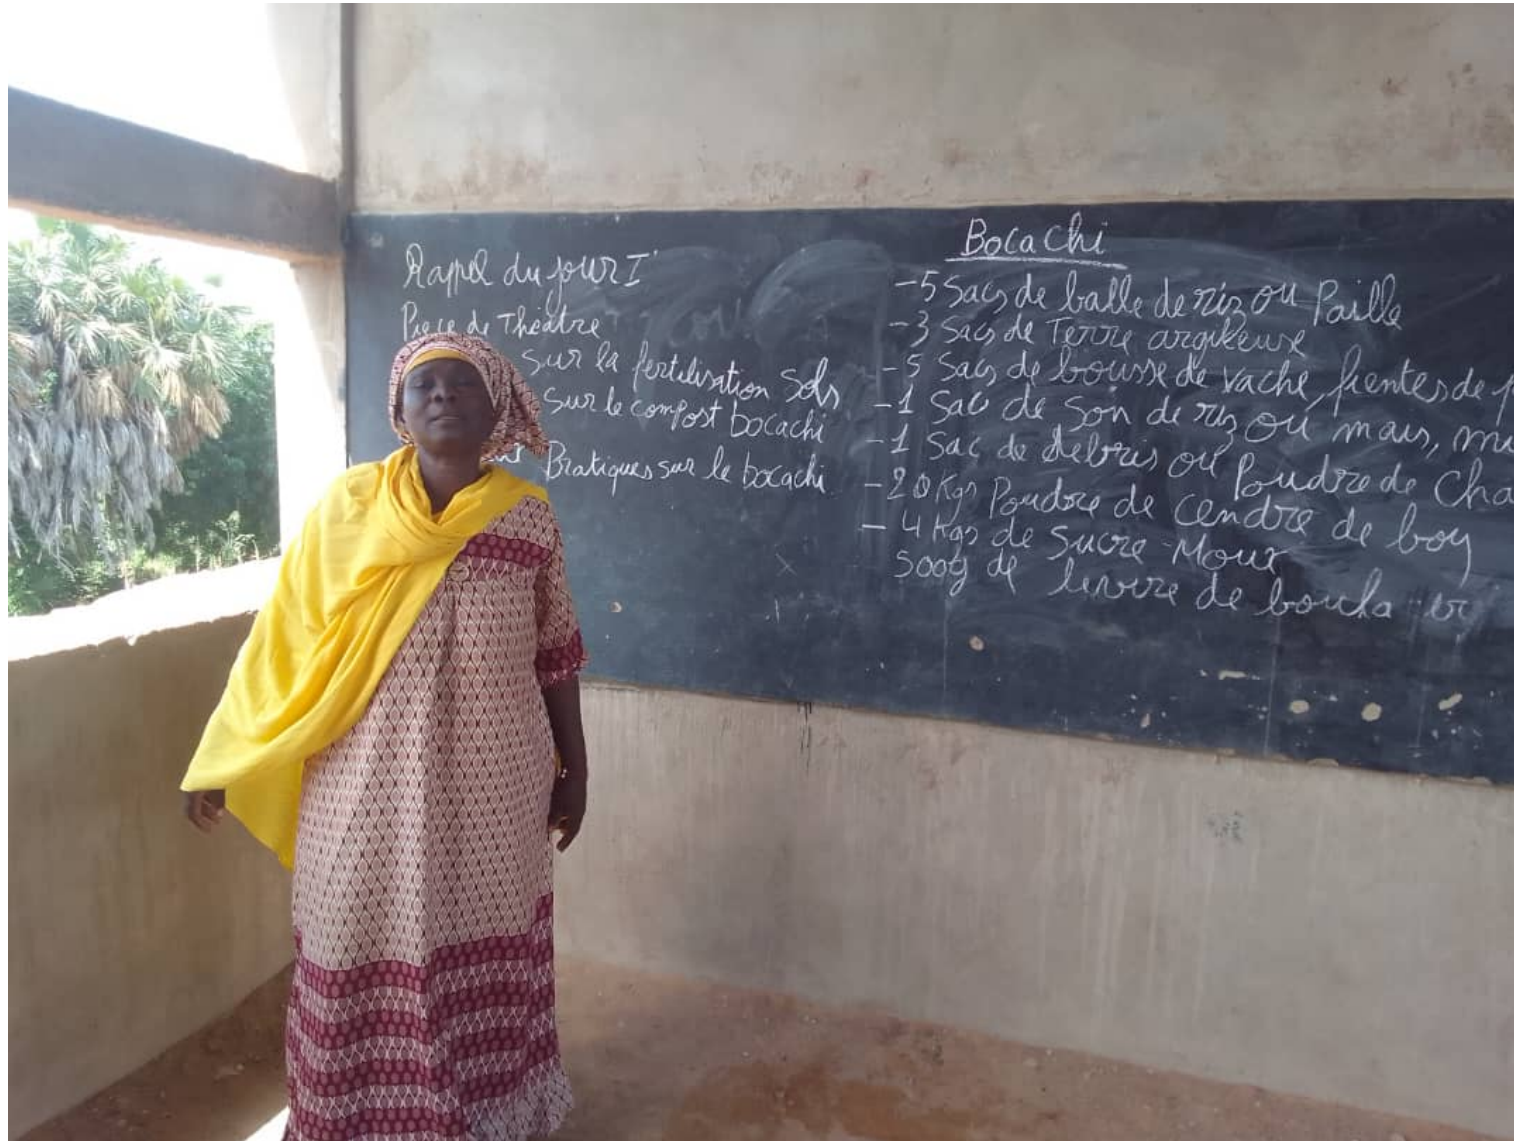 Rappel du jour I
Piece de Théâtre
sur la fertilisation Sols
sur le compost bocachi
Bratiques sur le bocachi
Bocachi
-5 Sacs de balle de riz ou Paille
-3 Sacs de Terre argileuse
-5 Sacs de bousse de vache, fientes de
-1 Sac de Son de riz ou mais,
-1 Sac de debris ou Poudre de
-20 Kgs Poudre de cendre de
-4 Kgs de Sucre Moux
500g de levure de